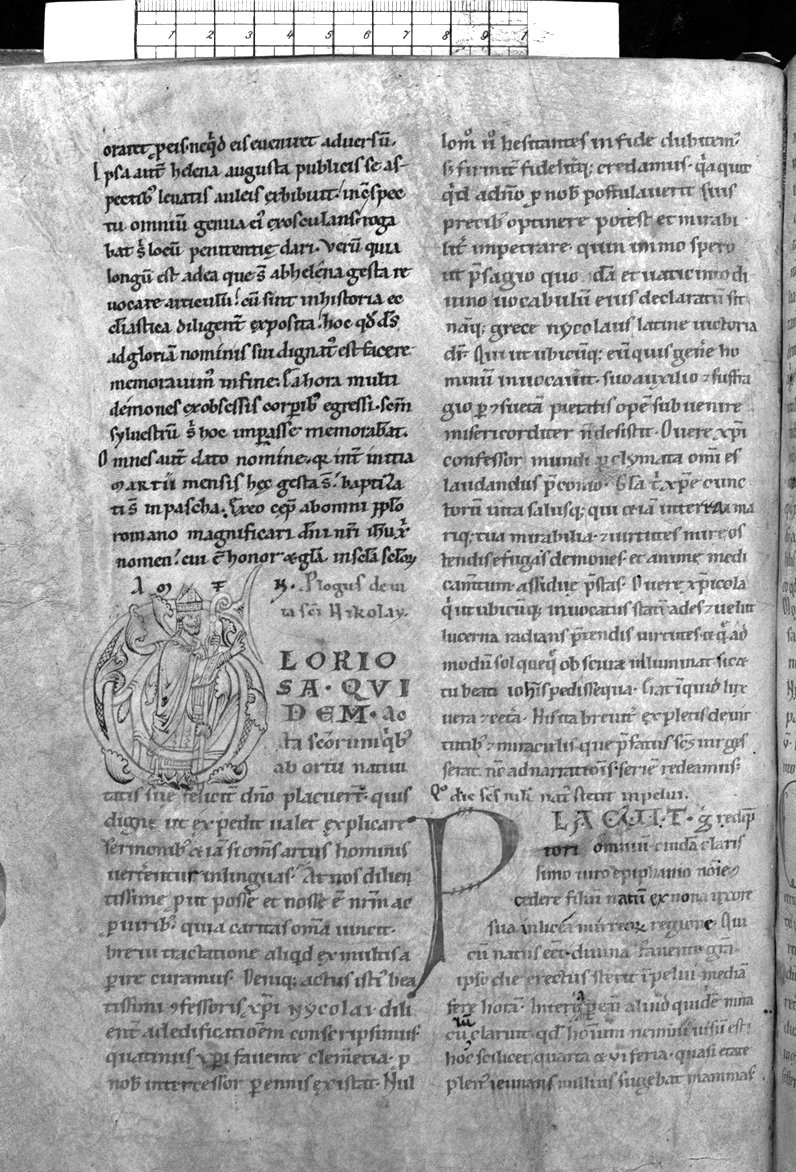 1 2 3 4 5 6 7 8 9 1
orarent p eis neq̄d eis eueniret aduersū.
Ipsa aut̄ helena augusta publicis se as-
pectib; leuatis auleis exhibuit. in c̄spec
tu omniū genua ei' exosculans roga
bat s̄ locū penitentię dari. Verū quia
longū est ad ea que s̄ ab helena gesta re
uocare articulū. cū sint in historia ec
clesiastica diligent̄ exposita. hoc q̄d d̄s
ad gloriā nominis sui dignat' est facere
memorauim' in fine. Ea hora multi
demones ex obsessis corporib; egressi. per scm̄
syluestrū s̄ hoc impasse memorabat.
Omnes aut̄ dato nomine. q̄ int̄ initia
martii mensis hęc gesta s̄. baptiza
ti s̄ in pascha. Ex eo cep̄ ab omni pplo
romano magnificari dn̄i nr̄i ihū xp̄i
nomen. cui ē honor & gl̄a in sc̄la sc̄loꝝ
A M E N. Plogus de ui
ta sc̄i Nikolay.
GLORIO
SA. QVI
DEM. ac
ta sc̄orum q̄b'
ab ortu natiui
tatis sue felicit̄ dn̄o placuer̄t. quis
digne ut expedit ualet explicare
sermonib; & iā si om̄s artus hominis
uerterentur in linguas. At nos dilien
tissime put posse et nosse ē nr̄m ac
p uirib; quia caritas om̄a uincit.
breui tractatione aliq̄d ex multis a
pire curamus. Deniq; actus isti' bea
tissimi ꝯfessoris xp̄i nycolai dili
ent̄ ad edificatioēm conscripsimus
quatinus xp̄i fauente clemetia. p
nob̄ intercessor pennis existat. Nul
lom° n° hesitantes in fide dubitem'
s; firmit̄ fidelit̄q; credamus. q̄a quit
q̄d a dn̄o p nob̄ postulauerit suis
precib; optinere potest et mirabi
lit̄ impetrare. quin immo spero
ut p̄sagio quodā et uaticinio di
uino uocabulū eius declaratū sit
nāq; grece nycolaus latine uictoria
dr̄. Qui ut ubicūq; eū quis gen̄e ho
minū inuocauit. suo auxilio & suffra
gio p ꝯsuetā pietatis opē subuenire
misericorditer n̄ desistit. O uere xp̄i
confessor mundi p clymata om̄i es
laudandus p̄conio. Gl̄a t̄ xp̄e cunc
torū uita salusq; qui etiā inter tua ma
riq; tua mirabilia & uirtutes mire os
tendis effugas demones. et anime medi
camtum. assidue p̄stas. O uere xp̄icola
q̄ ut ubicūq; inuocatus stati ades & uelut
lucerna radians p̄tendis uirtutes. teq̄ ad
modū sol queq; obscura illuminat. sicæ
tu beati ioh̄is pedisseq̄ua. Erat iquid lux
uera & cet̄a. His ita breuit̄ expletis de uir
tutib; & miraculis. que p̄fatus sc̄s uir ges
serat. nc̄ ad narrationis serie redeamus.
Q° die sc̄s nik̄ nat' stetit in pelui.
PLACUIT. g redēp
tori omnium cuidā claris
simo uiro epiphanio nōie
cedere filiū natū ex nona uxore
sua in licea mirreoꝝ regione. Qui
cū natus eēt. diuina fauente gr̄a.
ipso die erectus stetit i pelui mediā
fere horā. Interea p eū aliud quidē mira
cłm claruit. qd̄ hoīum nemini uisū est.
hoc scilicet quarta & vi feria. quasi etate
plen' ieiunans nullius sugebat mammas